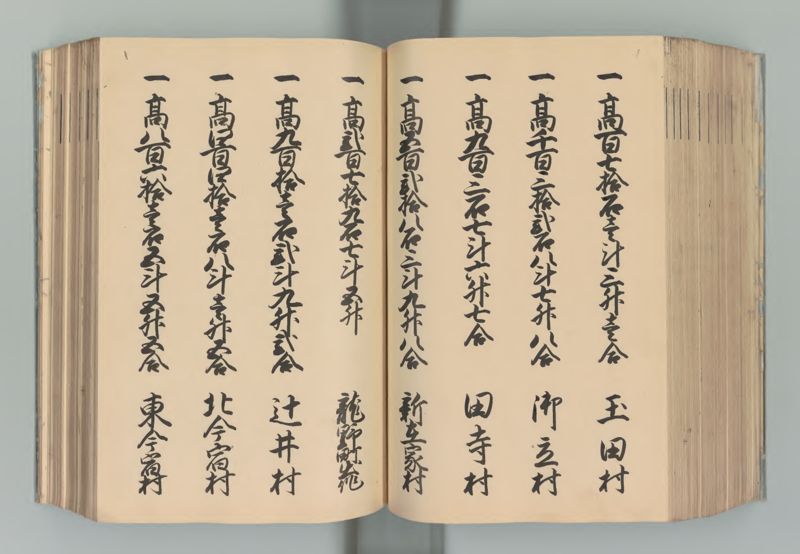 一 高百七拾石壱斗三升壱合 玉田村
一 高千百三拾弐石八斗七升八合 御立村
一 高九百三石七斗六升七合 田寺村
一 高五百弐拾八石三斗九升八合 新在家村
一 高弐百七拾九石七斗五升 龍野町
一 高九百拾壱石弐斗九升弐合 辻井村
一 高四百四拾壱石八斗壱升五合 北今宿村
一 高八百六拾壱石五斗五升五合 東今宿村